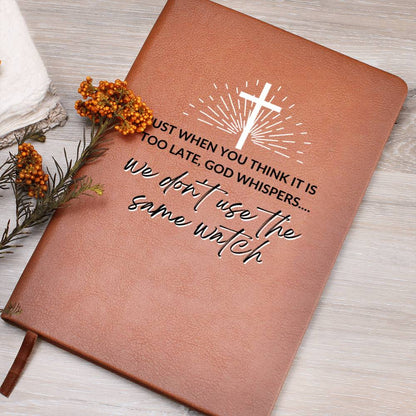 JUST WHEN YOU THINK IT IS
TOO LATE, GOD WHISPERS....
We don't use the
same watch